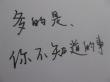 多的是、
你不知道的事